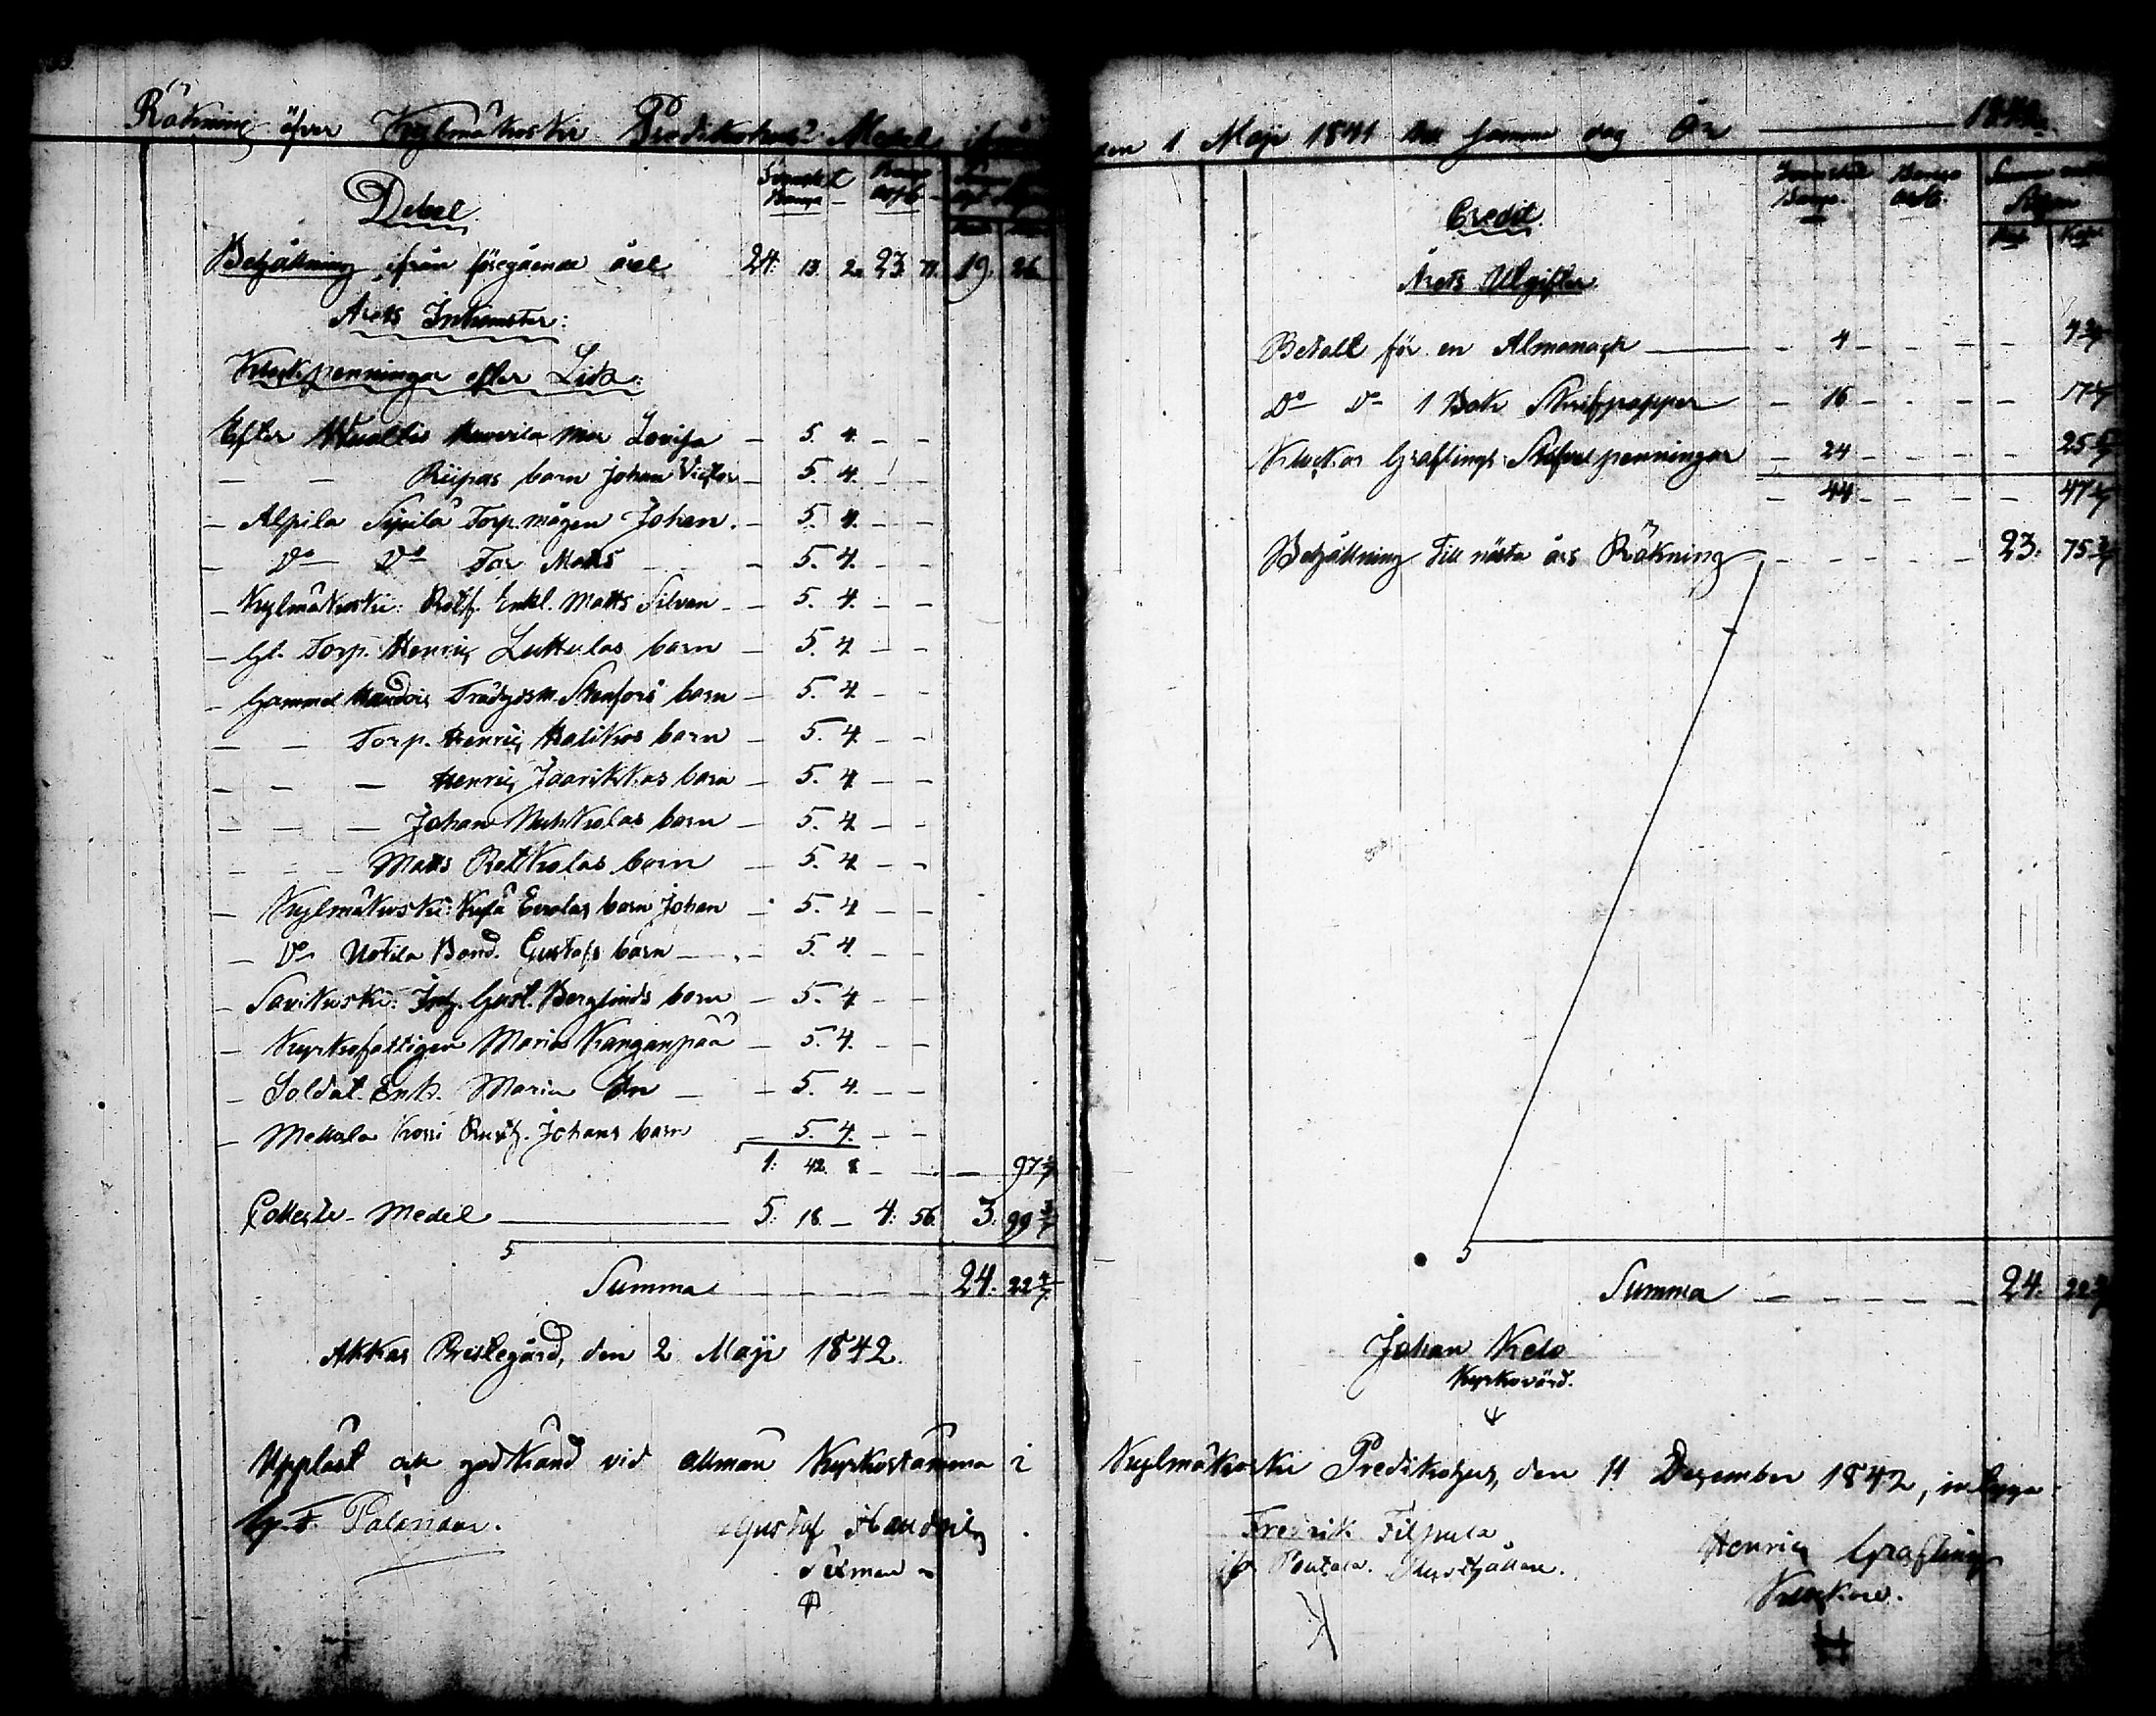 Räkning öfver Kylmäkoski Predikohus Medel ifrån
Debet.
Svenskt Banco
Banco Ass.
Behållning ifrån föregående året 24. 13. 2. 23. 71. 19. 26
Årets Inkomster:
Klockpenningar efter Lik:
Efter Lovisa — 5. 4. — —
— — Riipas barn Johan Victor — 5. 4. — —
— Alpila Sipilä Torp. mågen Johan. — 5. 4. — —
— Do Do Matts — 5. 4. — —
— Kylmäkoski: Enkl. Matts Silvan — 5. 4. — —
— Gl. Torp. Henric Luttulas barn — 5. 4 — —
— Gammel Handois Trädgdsm. Stenfors barn — 5. 4. — —
— — Torp. Henric Kalikos barn — 5. 4. — —
— — — Henric Jaarikkas barn — 5. 4 — —
— — — Johan barn — 5. 4 — —
— — — Matts Rettkolas barn — 5. 4 — —
— Kylmäkoski: Eerolas barn Johan — 5. 4 — —
— Do Uotila Bond. Gustafs barn — 5. 4. — —
— Savikoski: Gust. Berglunds barn — 5. 4 — —
— Kyrkofattigen Maria Kanganpää — 5. 4. — —
— Soldat. Enk. Maria — 5. 4. — —
— Mellola Kossi Rusth. Johans barn — 5. 4. — —
1: 42. 8 — — — 97
Collect-Medel — 5: 18. — 4: 56. 3. 99 3/7
Summa — — — — — 24. 22 4/7
Akkas Prestegård, den 2 Maji 1842.
Uppläst och godkänd vid allmän Kyrkostämma i
Palander.
Gustaf Handoila
Sexman
den 1 Maji 1841 till samma dag År — 1842.
Credit.
Banco Ass.
Årets Utgifter
Betalt för en Almanach — 4 — — — — 4 2/7
Do Do 1 Bok Skrifpapper — 16 — — — — 17 1/7
Klockar Graflings Stafvelpenningar — 24 — — — 25 5/7
— 44 — — — — 47 1/7
Behållning till nästa års Räkning — — — — — 23. 75 3/7
Summa — — — — — 24. 22 4/7
Johan Kelo
Kyrkovärd.
Kylmäkoski Predikohus, den 11 December 1842, intyga
Fredrik Filpula
Rusthållare.
Henric Grafling
Klockare.